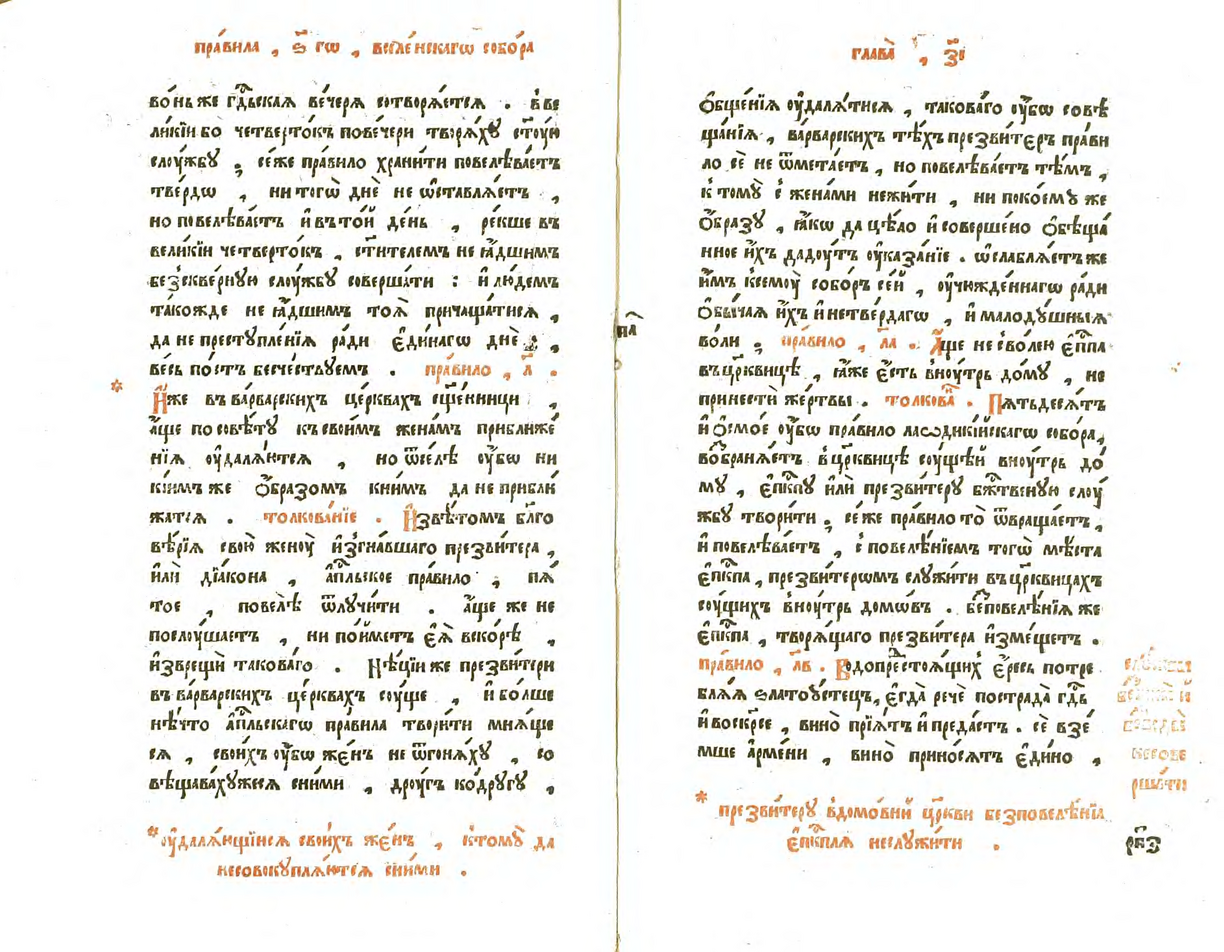 пра́вила , ѕ҃ гѡ , вселе́нскагѡ собо́ра
во́ньже гд҇ьская вече́ря сотворѧ́ется . вве
ли́кїибо четверто́къ повече́ри творѧ́хꙋ ст҃ꙋю
слꙋ́жбꙋ , се́же пра́вило храни́ти повелѣва́етъ
тве́рдѡ , ни тогѡ̀ днѐ не ѡ҆ставлѧ́етъ ,
но повелѣва́етъ и҆ въ то́й де́нь , ре́кше въ
вели́кїи четверто́къ , ст҃и́телемъ не ꙗ҆́дшимъ
безскве́рнꙋю слꙋ́жбꙋ соверша́ти : и҆ лю́демъ
тако́жде не ꙗ҆́дшимъ тоѧ̀ причаща́тисѧ ,
да не престꙋпле́нїѧ ра́ди є҆ди́нагѡ днѐ ,
ве́сь по́стъ безче́ствꙋемъ . пра́вило , л҃ .
И҆́же въ ва́рварскихъ це́рквахъ сщ҃е́нници ,
а҆́ще по совѣ́тꙋ къ свои́мъ жена́мъ приближе́
нїѧ ᲂу҆далѧ́ютсѧ , но ѿсе́лѣ ᲂу҆́бѡ ни
ки́имъ же ѻ҆́бразомъ книмъ да не прибли́
жатсѧ . толкова́нїе . И҆звѣ́томъ бл҃го
вѣ́рїѧ свою̀ женꙋ̀ и҆згна́вшаго презви́тера ,
и҆лѝ дїа́кона , а҆пⷭ҇льское пра́вило , пѧ́
тое , повелѣ̀ ѿлꙋчи́ти . а҆́ще же не
послꙋ́шаетъ , ни по́йметъ є҆ѧ̀ вско́рѣ ,
и҆зврещѝ такова́го . Нѣ́цїи же презви́тери
въ ва́рварскихъ це́рквахъ сꙋ́ще , и҆ бо́лше
нѣ́что а҆пⷭ҇льскагѡ пра́вила твори́ти мнѧ́ще
сѧ , свои́хъ ᲂу҆́бѡ же́нъ не ѿгонѧ́хꙋ , со
вѣщава́хꙋжесѧ сни́ми , дрꙋ́гъ ко дрꙋ́гꙋ ,
* ᲂу҆далѧ́ющїисѧ свои́хъ же́нъ , ктомꙋ̀ да
несовокꙋплѧ́ютсѧ сни́ми .
па҃
глава̀ , з҃і
ѻ҆бще́нїѧ ᲂу҆далѧ́тисѧ , такова́го ᲂу҆́бѡ совѣ
ща́нїѧ , ва́рварскихъ тѣ́хъ презви́теръ пра́ви
ло сѐ не ѿмета́етъ , но повелѣва́етъ тѣ́мъ ,
к томꙋ̀ с жена́ми нежи́ти , ни по ко́емꙋ же
ѻ҆́бразꙋ , ꙗ҆́кѡ да цѣ́ло и҆ соверше́но ѻ҆бѣща́
нное и҆́хъ дадꙋ́тъ ᲂу҆каза́нїе . ѡ҆слаблѧ́етъже
и҆́мъ ксемꙋ̀ собо́ръ се́й , ᲂу҆чюжде́ннагѡ ра́ди
ѻ҆бы́чаѧ и҆́хъ и҆ нетве́рдагѡ , и҆ малодꙋ́шныѧ
во́ли , пра́вило , ла҃ . А҆́ще не сво́лею є҆пⷭ҇па
въ цр҃квицѣ , ꙗ҆́же є҆́сть внꙋ́трь до́мꙋ , не
принести́ же́ртвы . толкова҇ . Пѧтьдесѧ́тъ
и҆ ѻ҆смо́е ᲂу҆́бѡ пра́вило лаѻдикі́йскагѡ собо́ра ,
возбранѧ́етъ в цр҃квицѣ сꙋ́щей внꙋ́трь до́
мꙋ , є҆пⷭ҇кпꙋ и҆лѝ презви́терꙋ бж҃твенꙋю слꙋ́
жбꙋ твори́ти , се́же пра́вило то̀ ѿвраща́етъ ,
и҆ повелѣва́етъ , с повелѣ́нїемъ тогѡ̀ мѣ́ста
є҆пⷭ҇кпа , презви́терѡмъ слꙋжи́ти въ цр҃квицахъ
сꙋ́щихъ внꙋ́трь домѡ́въ . бе́зповелѣ́нїѧ же
є҆пⷭ҇кпа , творѧ́щаго презви́тера и҆зме́щетъ .
пра́вило , лв҃ . Водопрестоѧ́щихъ є҆́ресь потре
блѧ́ѧ ѕлатоꙋ́стецъ , є҆гда̀ речѐ пострада̀ гд҇ь
и҆ воскр҇се , вино̀ прїѧ́тъ и҆ преда́стъ . сѐ взе́
мше а҆рме́ни , вино̀ прино́сѧтъ є҆ди́но ,
* презви́терꙋ вдомо́внѣй цр҃кви безповелѣ́нїѧ
є҆пⷭ҇кплѧ неслꙋжи́ти .
несове
рша́ти
рк҃з